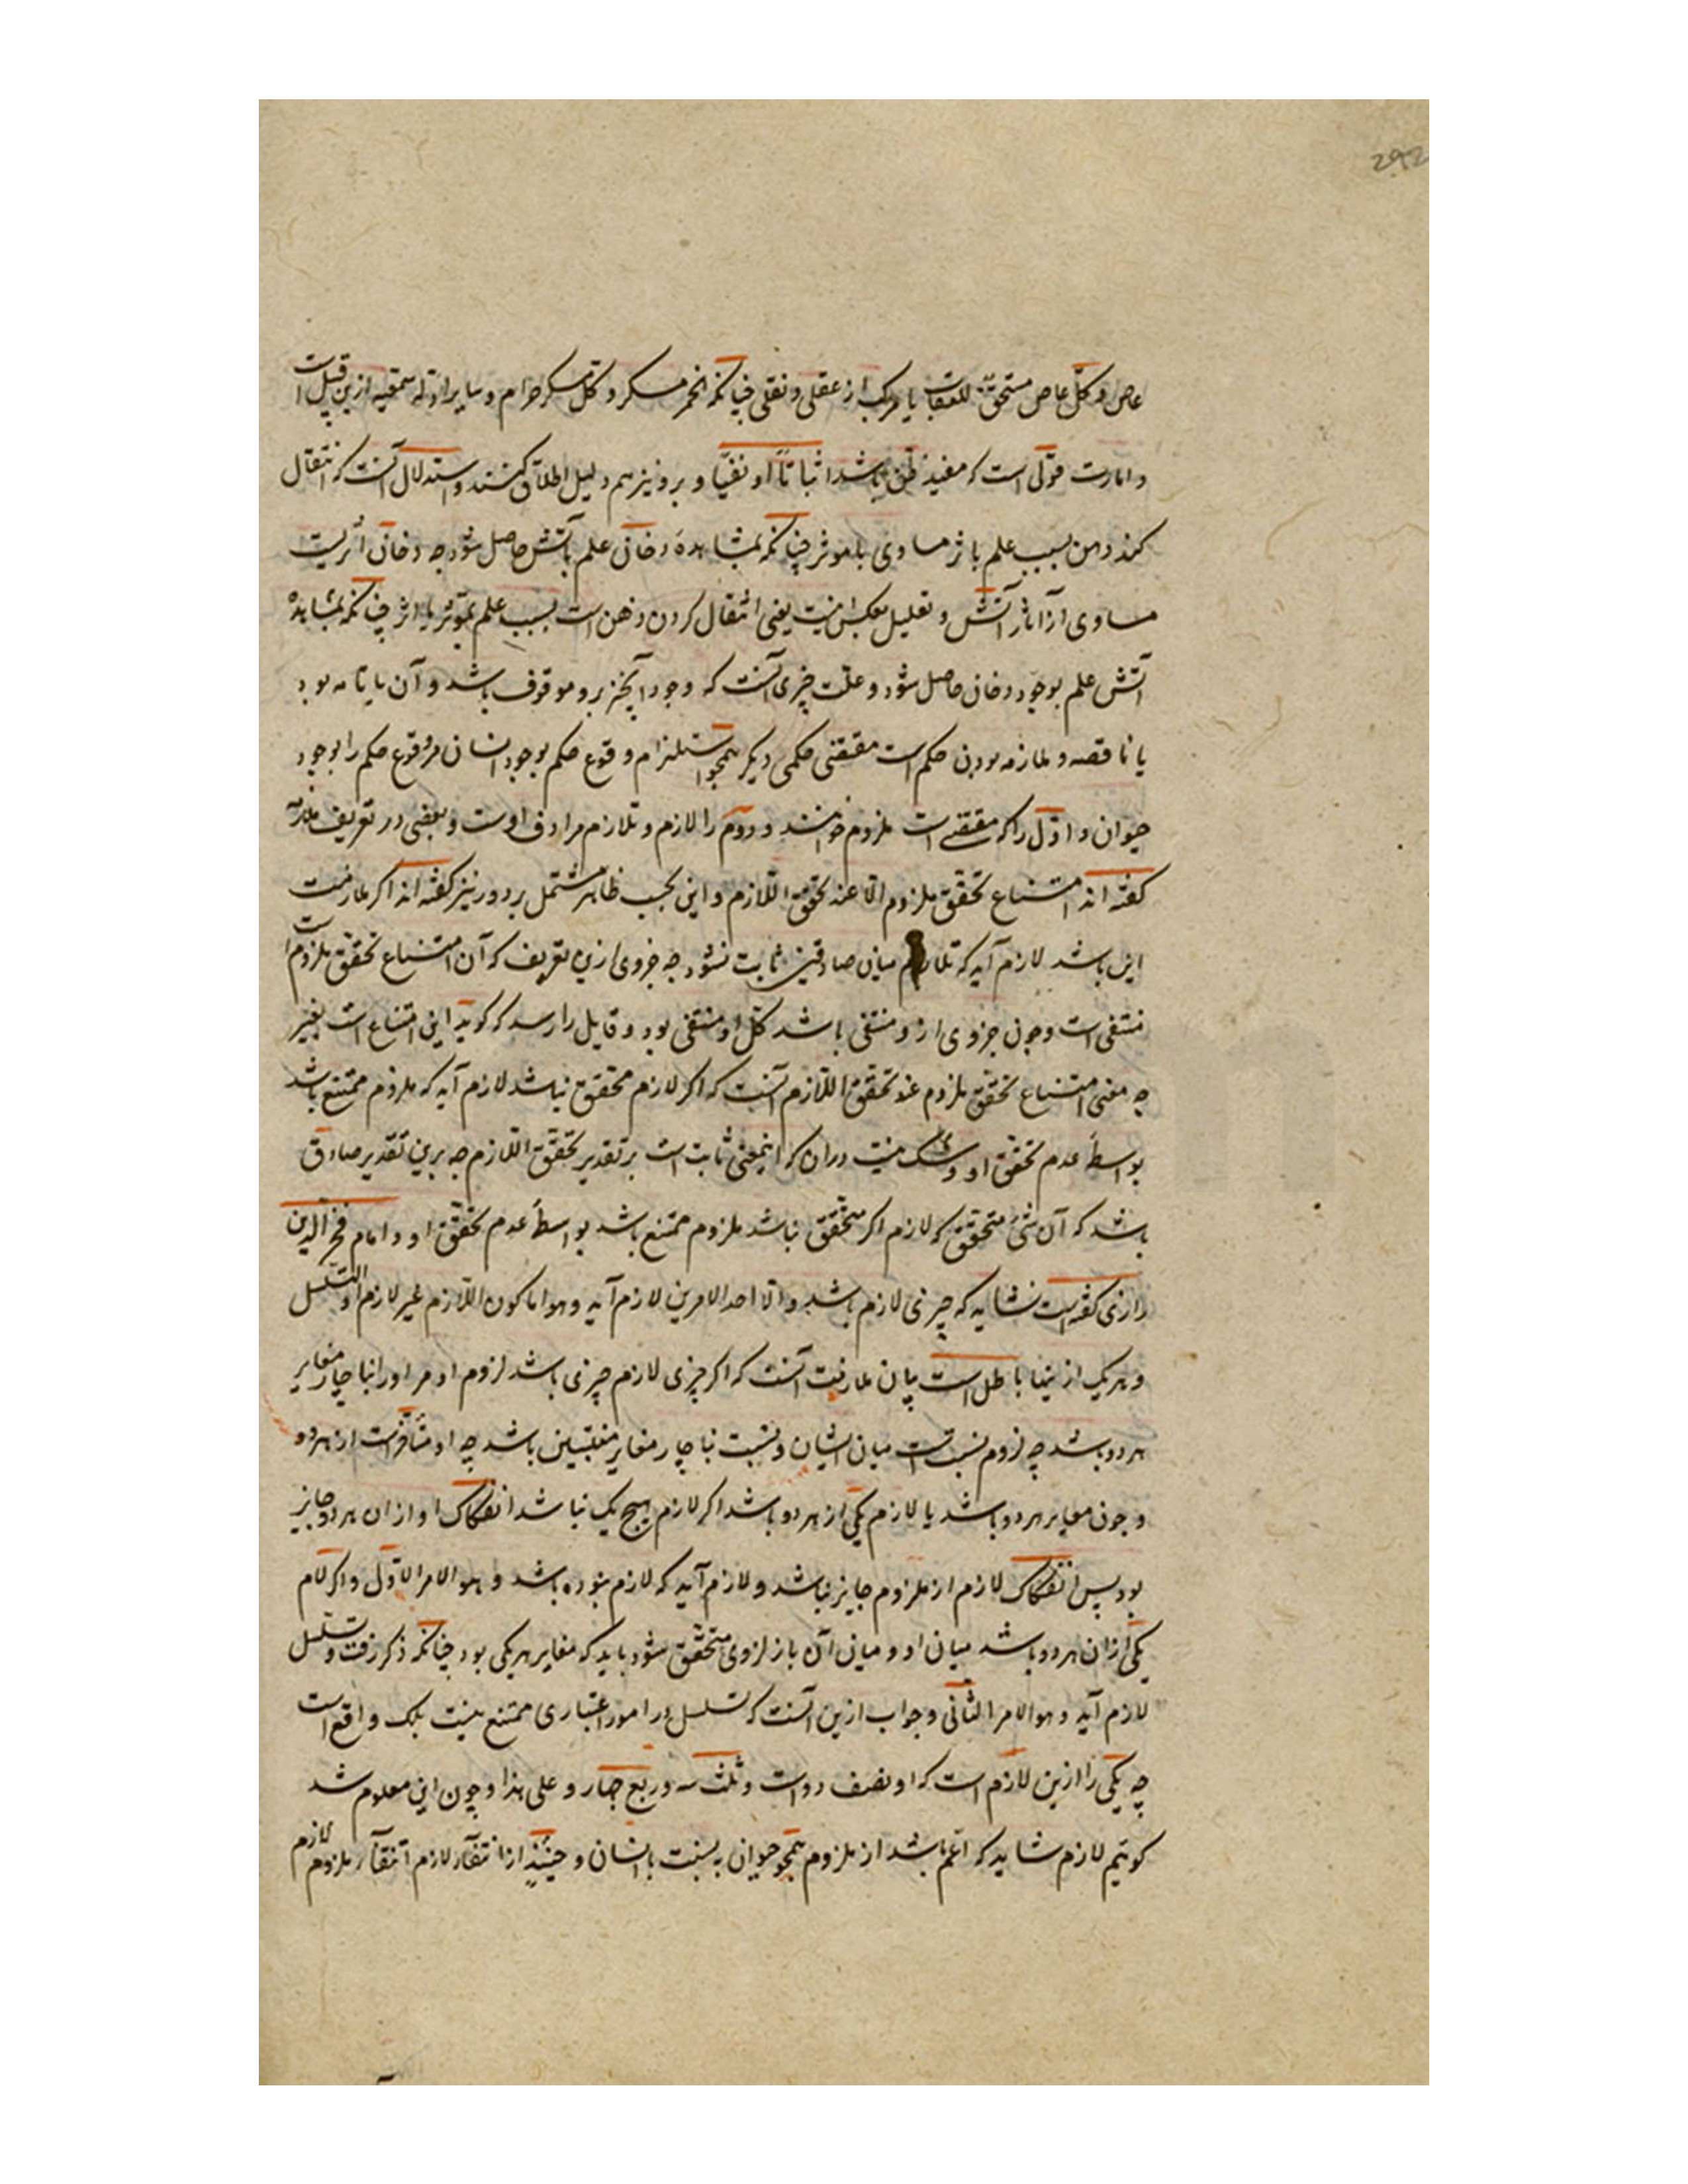 292
عاص و کلّ عاص مستحقّ للعقاب یا مرکب از عقلی و نقلی چنانکه الخمر مسکر و کلّ مسکر حرام و سایر ادله سمعیه ازین قبیل است
و امارت قولی است که مفید ظن باشد اثباتاً او نفیاً و برو نیز هم دلیل اطلاق کنند و استدلال آنست که انتقال
کند ذهن بسبب علم باثر مساوی با موثر چنانکه بمشاهدهٔ دخان علم بآتش حاصل شود چه دخان اثریست
مساوی از آثار آتش و تعلیل بعکس اینست یعنی انتقال کردن ذهن است بسبب علم بموثر با اثر چنانکه بمشاهدهٔ
آتش علم بوجود دخان حاصل شود و علّت چیزی آنست که وجود آنچیز برو موقوف باشد و آن یا تامه بود
یا ناقصه و ملازمه بودن حکم است مقتضی حکمی دیگر همچو استلزام وقوع حکم بوجود انسان مر وقوع حکم را بوجود
حیوان و اوّل را که مقتضی است ملزوم خوانند و دوم را لازم و تلازم مرادف اوست و بعضی در تعریف ملازمه
کفته اند امتناع تحقّق ملزوم الا عند تحقق اللّازم و این بحسب ظاهر مشتمل بر دور نیز کفته اند اکر ملازمت
این باشد لازم آید که تلازم میان صادقین ثابت نشود چه جزوی ازین تعریف که آن امتناع تحقق ملزوم است
منتفی است و چون جزوی ازو منتفی باشد کلّ او منتفی بود و قایل را رسد که کوید این امتناع است بغیر
چه معنی امتناع تحقق ملزوم عند تحقق اللّازم آنست که اکر لازم محقق نباشد لازم آید که ملزوم ممتنع باشد
بواسطهٔ عدم تحقق او و شک نیست در ان که اینمعنی ثابت است بر تقدیر تحقّق اللّازم چه برین تقدیر صادق
باشد که آن شئ متحقق که لازم اکر متحقّق نباشد ملزوم ممتنع باشد بواسطهٔ عدم تحقّق او و امام فخر الدین
رازی کفته است نشاید که چیزی لازم باشد و الّا احد الامرین لازم آید و هو اما کون اللّازم غیر لازم او التسلسل
و هریک از ینها باطل است بیان ملازمت آنست که اکر چیزی لازم چیزی باشد لزوم او مر او را ناچار مغایر
هر دو باشد چه لزوم نسبت است میان ایشان و نسبت ناچار مغایر منتسبین باشد چه او متأخرست از هر دو
و چون مغایر هر دو باشد یا لازم یکی از هر دو باشد اکر لازم هیچ یک نباشد انفکاک او از ان هر دو جایز
بود پس انفکاک لازم از ملزوم جایز باشد و لازم آید که لازم نبوده باشد و هو الامر الاوّل و اکر لازم
یکی از ان هر دو باشد میان او و میان آن باز لزومی متحقّق شود باید که مغایر هر یکی بود چنانکه ذکر رفت و تسلسل
لازم آید و هو الامر الثانی و جواب ازین آنست که تسلسل در امور اعتباری ممتنع نیست بلک واقع است
چه یکی را ازین لازم است که او نصف دو است و ثلث سه و ربع چهار و علی هذا و چون این معلوم شد
کوئیم لازم شاید که اعّم باشد از ملزوم همچو حیوان به نسبت با انسان و حینئذٍ از انتفاء لازم انتفاء ملزوم لازم